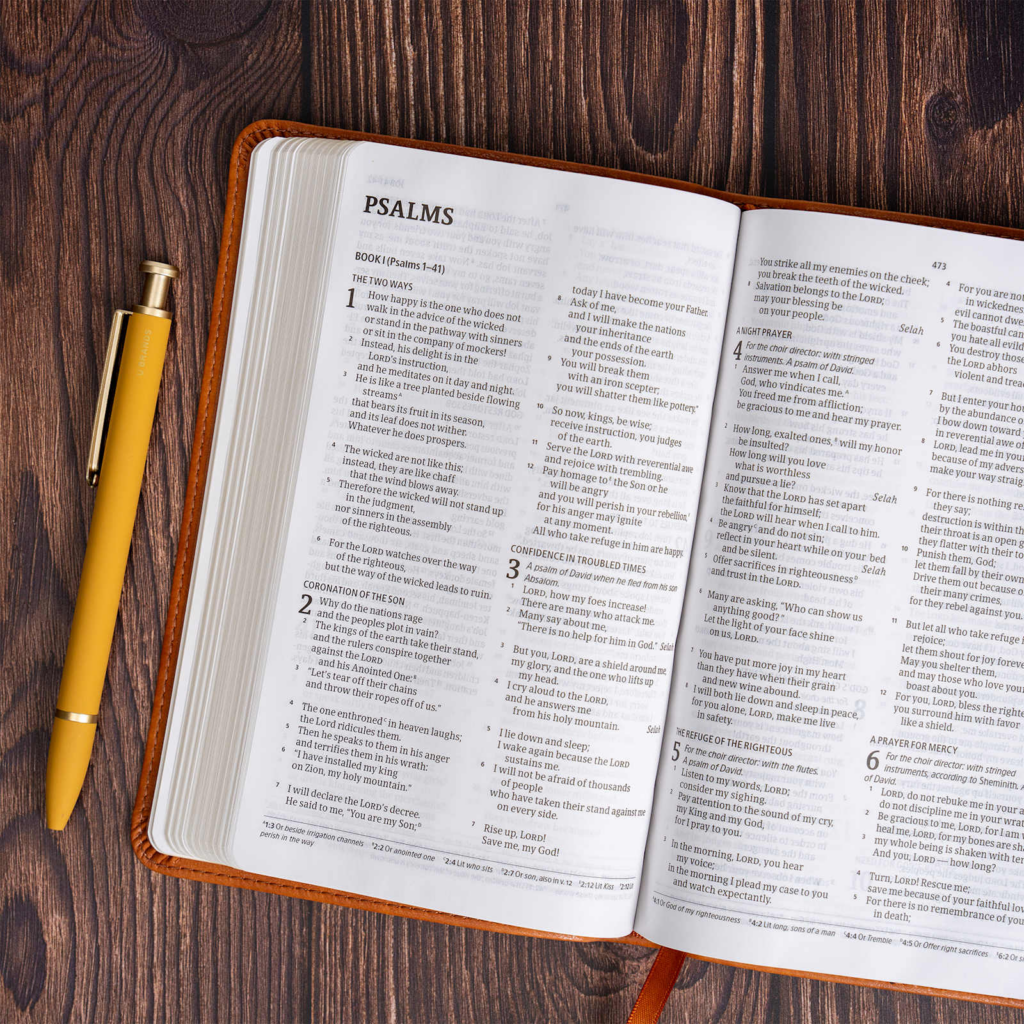 PSALMS
BOOK I (Psalms 1–41)
THE TWO WAYS
1 How happy is the one who does not
walk in the advice of the wicked
or stand in the pathway with sinners
or sit in the company of mockers!
2 Instead, his delight is in the
LORD's instruction,
and he meditates on it day and night.
3 He is like a tree planted beside flowing
streams^A
that bears its fruit in its season,
and its leaf does not wither.
Whatever he does prospers.
4 The wicked are not like this;
instead, they are like chaff
that the wind blows away.
5 Therefore the wicked will not stand up
in the judgment,
nor sinners in the assembly
of the righteous.
6 For the LORD watches over the way
of the righteous,
but the way of the wicked leads to ruin.
CORONATION OF THE SON
2 Why do the nations rage
and the peoples plot in vain?
2 The kings of the earth take their stand,
and the rulers conspire together
against the LORD
and his Anointed One:^B
3 "Let's tear off their chains
and throw their ropes off of us."
4 The one enthroned^C in heaven laughs;
the Lord ridicules them.
5 Then he speaks to them in his anger
and terrifies them in his wrath:
6 "I have installed my king
on Zion, my holy mountain."
7 I will declare the LORD's decree.
He said to me, "You are my Son;^D
today I have become your Father.
8 Ask of me,
and I will make the nations
your inheritance
and the ends of the earth
your possession.
9 You will break them
with an iron scepter;
you will shatter them like pottery."
10 So now, kings, be wise;
receive instruction, you judges
of the earth.
11 Serve the LORD with reverential awe
and rejoice with trembling.
12 Pay homage to the Son or he
will be angry
and you will perish in your rebellion,
for his anger may ignite
at any moment.
All who take refuge in him are happy.
CONFIDENCE IN TROUBLED TIMES
3 A psalm of David when he fled from his son
Absalom.
1 LORD, how my foes increase!
There are many who attack me.
2 Many say about me,
"There is no help for him in God." Selah
3 But you, LORD, are a shield around me,
my glory, and the one who lifts up
my head.
4 I cry aloud to the LORD,
and he answers me
from his holy mountain. Selah
5 I lie down and sleep;
I wake again because the LORD
sustains me.
6 I will not be afraid of thousands
of people
who have taken their stand against me
on every side.
7 Rise up, LORD!
Save me, my God!
^A 1:3 Or beside irrigation channels ^B 2:2 Or anointed one ^C 2:4 Lit who sits ^D 2:7 Or son, also in v. 12 2:12 Lit Kiss
perish in the way
473
You strike all my enemies on the cheek;
you break the teeth of the wicked.
8 Salvation belongs to the LORD;
may your blessing be
on your people. Selah
A NIGHT PRAYER
4 For the choir director: with stringed
instruments. A psalm of David.
1 Answer me when I call,
God, who vindicates me.^A
You freed me from affliction;
be gracious to me and hear my prayer.
2 How long, exalted ones,^B will my honor
be insulted?
How long will you love
what is worthless
and pursue a lie? Selah
3 Know that the LORD has set apart
the faithful for himself;
the LORD will hear when I call to him.
4 Be angry and do not sin;
reflect in your heart while on your bed
and be silent. Selah
5 Offer sacrifices in righteousness
and trust in the LORD.
6 Many are asking, "Who can show us
anything good?"
Let the light of your face shine
on us, LORD.
7 You have put more joy in my heart
than they have when their grain
and new wine abound.
8 I will both lie down and sleep in peace,
for you alone, LORD, make me live
in safety.
THE REFUGE OF THE RIGHTEOUS
5 For the choir director: with the flutes.
A psalm of David.
1 Listen to my words, LORD;
consider my sighing.
2 Pay attention to the sound of my cry,
my King and my God,
for I pray to you.
3 In the morning, LORD, you hear
my voice;
in the morning I plead my case to you
and watch expectantly.
4 For you are not
in wickedness
evil cannot
5 The boastful can
you hate all
6 You destroy those
the LORD abhors
violent and
7 But I enter your
by the abundance
I bow down toward
in reverential awe
8 LORD, lead me in your
because of my
make your way
9 For there is nothing
they say;
destruction is within
their throat is an open
they flatter with their
10 Punish them, God;
let them fall by their own
Drive them out because
their many crimes,
for they rebel against you.
11 But let all who take refuge
rejoice;
let them shout for joy
May you shelter them,
and may those who love your
boast about you.
12 For you, LORD, bless the
you surround him with favor
like a shield.
A PRAYER FOR MERCY
6 For the choir director: with stringed
instruments, according to Sheminith.
of David.
1 LORD, do not rebuke me in your
do not discipline me in your
2 Be gracious to me, LORD, for I am
heal me, LORD, for my bones are
3 my whole being is shaken with
And you, LORD — how long?
4 Turn, LORD! Rescue me;
save me because of your faithful
5 For there is no remembrance of
in death;
4:1 Or God of my righteousness 4:2 Lit long, sons of a man 4:4 Or Tremble 4:5 Or Offer right sacrifices 6:2 Or